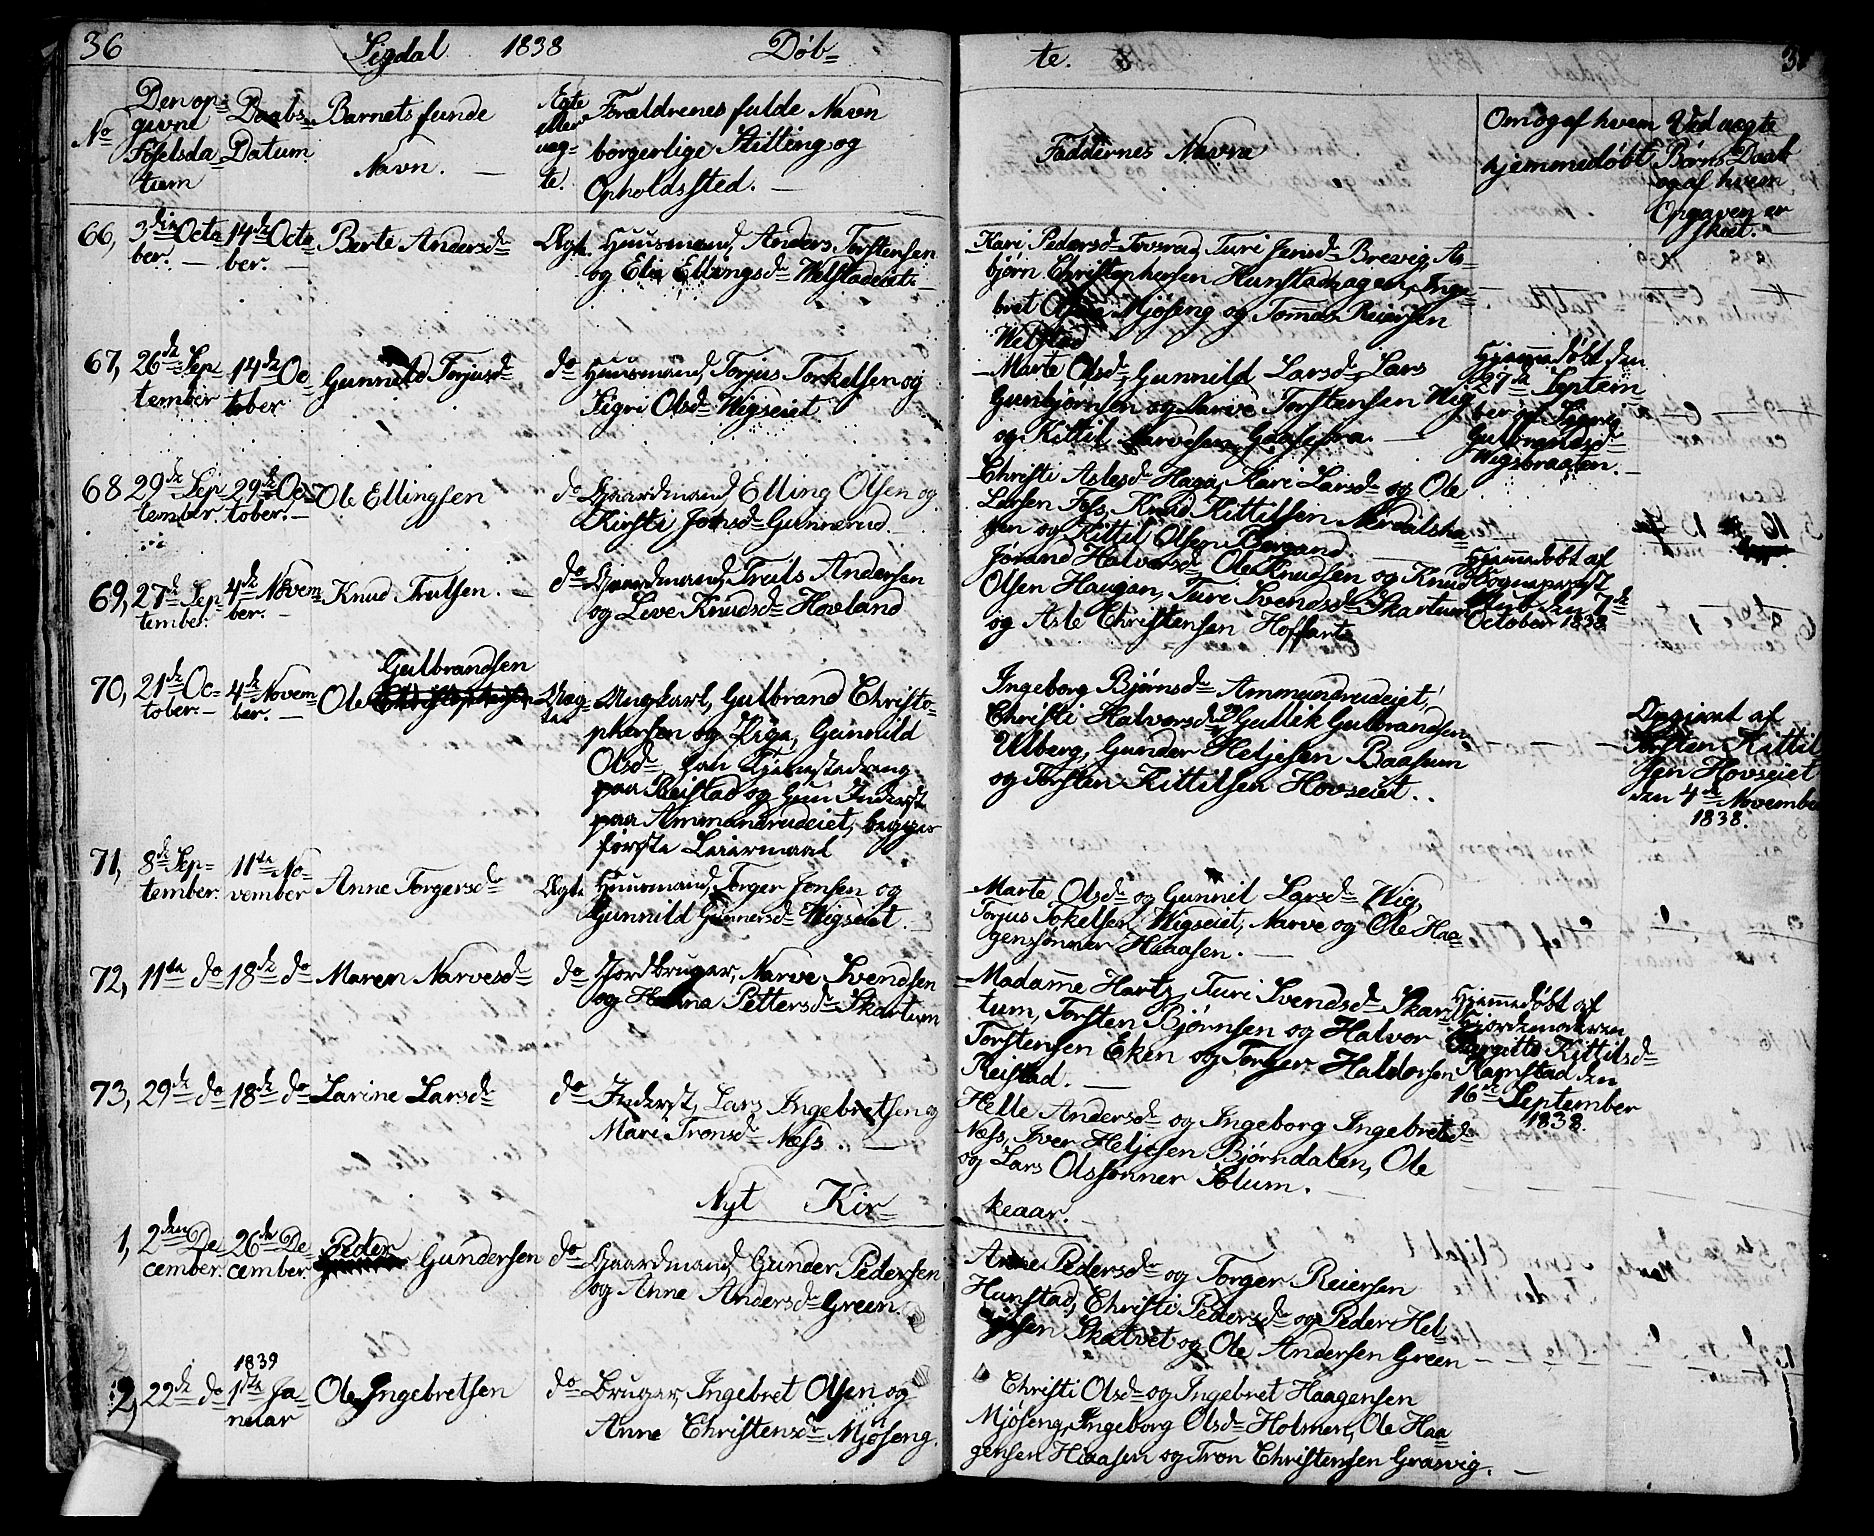 36 Sigdal 1838 Døb-
te.
No
Den op-
givne
Føselsda
tum
Daabs-
Datum
Barnets funde
Navn. —
Ægte
eller
uæg-
te.
Forældrenes fulde Navn
borgerlige Stilling og
Opholdssted. —
Faddernes Navne
Om og af hvem
hjemmedøbt
Ved uægte
Børns Daab
og af hvem
Opgaven er
skeet. —
66, 3die Octo
ber. —
14de Octo
ber. —
Berte Andersdr
Ægte
Huusmand, Anders Torstensen
og Eli Ellingsdr Welstadeiet. —
Kari Pedersdr Tovsrud, Turi Jensdr Brevig, As-
bjørn Christophersen Hunstadhagen, Inge-
bret Olsen Mjøseng og Tomas Reiersen
Welstad
67, 26de Sep
tember
14de Oc
tober
Gunnild Torjusdr
do
Huusmand, Torjus Torkelsen og
Sigri Olsdr Wigseiet
Marte Olsdr, Gunnild Larsdr, Lars
Gunbjørnsen og Narve Torstensen Wig
og Kittil Narvesen
Hjemmedøbt den
27de Septem
ber af Sigrid
Gulbrandsdr
Wigsbraaten. —
68 29de Sep
tember.
29de Oc
tober. —
Ole Ellingsen
do
Gaardmand Elling Olsen og
Kirsti Jonsdr Gunnerud. —
Christi Aslesdr Haga, Kari Larsdr og Ole
Larsen Foss, Knud Kittilsen Nerdalsha-
gen og Kittil Olsen Bergand
69, 27de Sep
tember.
4de Novem
ber. —
Knud Trulsen. —
do
Gaardmand, Truls Andersen
og Leve Knudsdr Hovland
Jørand Halvorsdr, Ole Knudsen og Knud
Olsen Haugan, Turi Svendsdr Skartum
og Asle Christensen Hoffart
Hjemmedøbt af
Sogneprest
den 7de
October 1838
70, 21de Oc-
tober. —
4de Novem
ber. —
Gulbrandsen
Ole
Uæg-
te
Ungkarl, Gulbrand Christo-
phersen og Pige, Gunnild
Olsdr, han Tjenestedreng
paa Reistad og hun Inderst
paa Ammundrudeiet, begges
første Leiermaal
Ingeborg Bjørnsdr Ammundrudeiet,
Christi Halvorsdr og Gullik Gulbrandsen
Ulberg, Gunder Heljesen Baasum
og Torsten Kittilsen Hovseiet. .
Opgivet af
Torsten Kittil
sen Hovseiet
den 4de November
1838.
71, 8de Sep-
tember.
11te No-
vember
Anne Torgersdr
Ægte
Huusmand, Torger Jonsen og
Gunnild Gunnersdr Wigseiet. —
Marte Olsdr og Gunnil Larsdr Wig,
Torjus Tokelsen, Wigseiet, Narve og Ole Haa
genssønner Haasen. —
72, 11te do 18de do Maren Narvesdr
do
Jordbruger, Narve Svendsen
og Helena Pettersdr Skartum
Madame Hartz, Turi Svendsdr Skar
tum, Torsten Bjørnsen og Halvor
Torstensen Eken og Torger Haldorsen
Reistad. —
Hjemmedøbt af
Gjordemoderen
Bergitte Kittilsdr
Ramstad den
16de September
1838.
73, 29de do 18de do Larine Larsdr
do
Inderst, Lars Ingebretsen og
Mari Tronsdr Næss. —
Helle Andersdr og Ingeborg Ingebretsdr
Næss, Iver Heljesen Bjørndalen, Ole
og Lars Olssønner Solum. —
Nyt Kir-
keaar. —
1, 2den De
cember.
26de De-
cember.
Peder
Gundersen
do
Gaardmand, Gunder Pedersen
og Anne Andersdr Green.
Anne Pedersdr og Torger Reiersen
Hunstad, Christi Pedersdr og Peder Hel-
jesen Skatvet og Ole Andersen Green
2, 22de do
1839
1ste Ja
nuar
Ole Ingebretsen
do
Bruger, Ingebret Olsen og
Anne Christensdr Mjøseng.
Christi Olsdr og Ingebret Haagensen
Mjøseng, Ingeborg Olsdr Holmen, Ole Haa
gensen Haasen og Tron Christensen Grasvig. —